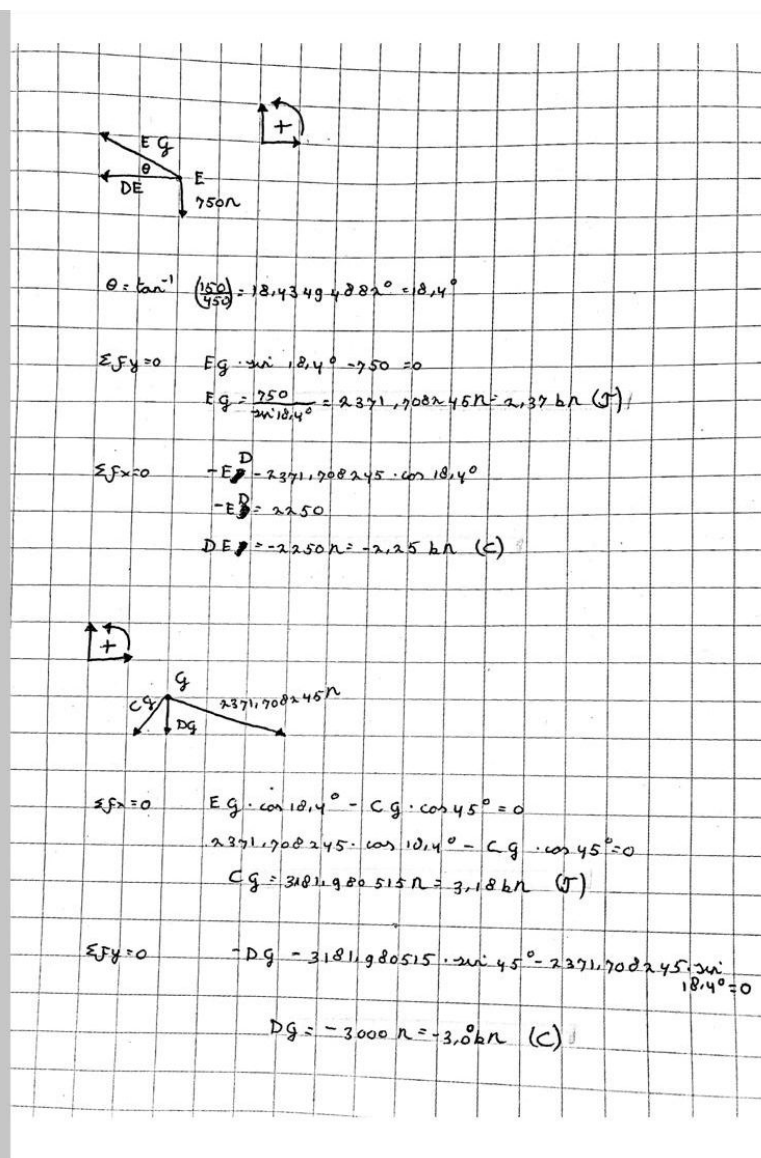 +
EG
θ
E
DE
750n
θ = tan⁻¹ (150/450) = 18,43494882° = 18,4°
Σfy=0 EG · sin 18,4° - 750 = 0
EG = 750/sin 18,4° = 2371,708245n = 2,37 kn (T)
Σfx=0 -ED - 2371,708245 · cos 18,4°
-ED = 2250
DE = -2250n = -2,25 kn (C)
+
G
CG
2371,708245n
DG
Σfx=0 EG · cos 18,4° - CG · cos 45° = 0
2371,708245 · cos 18,4° - CG · cos 45° = 0
CG = 3181,980515n = 3,18kn (T)
Σfy=0 -DG - 3181,980515 · sin 45° - 2371,708245 · sin
18,4° = 0
DG = -3000n = -3,0kn (C)